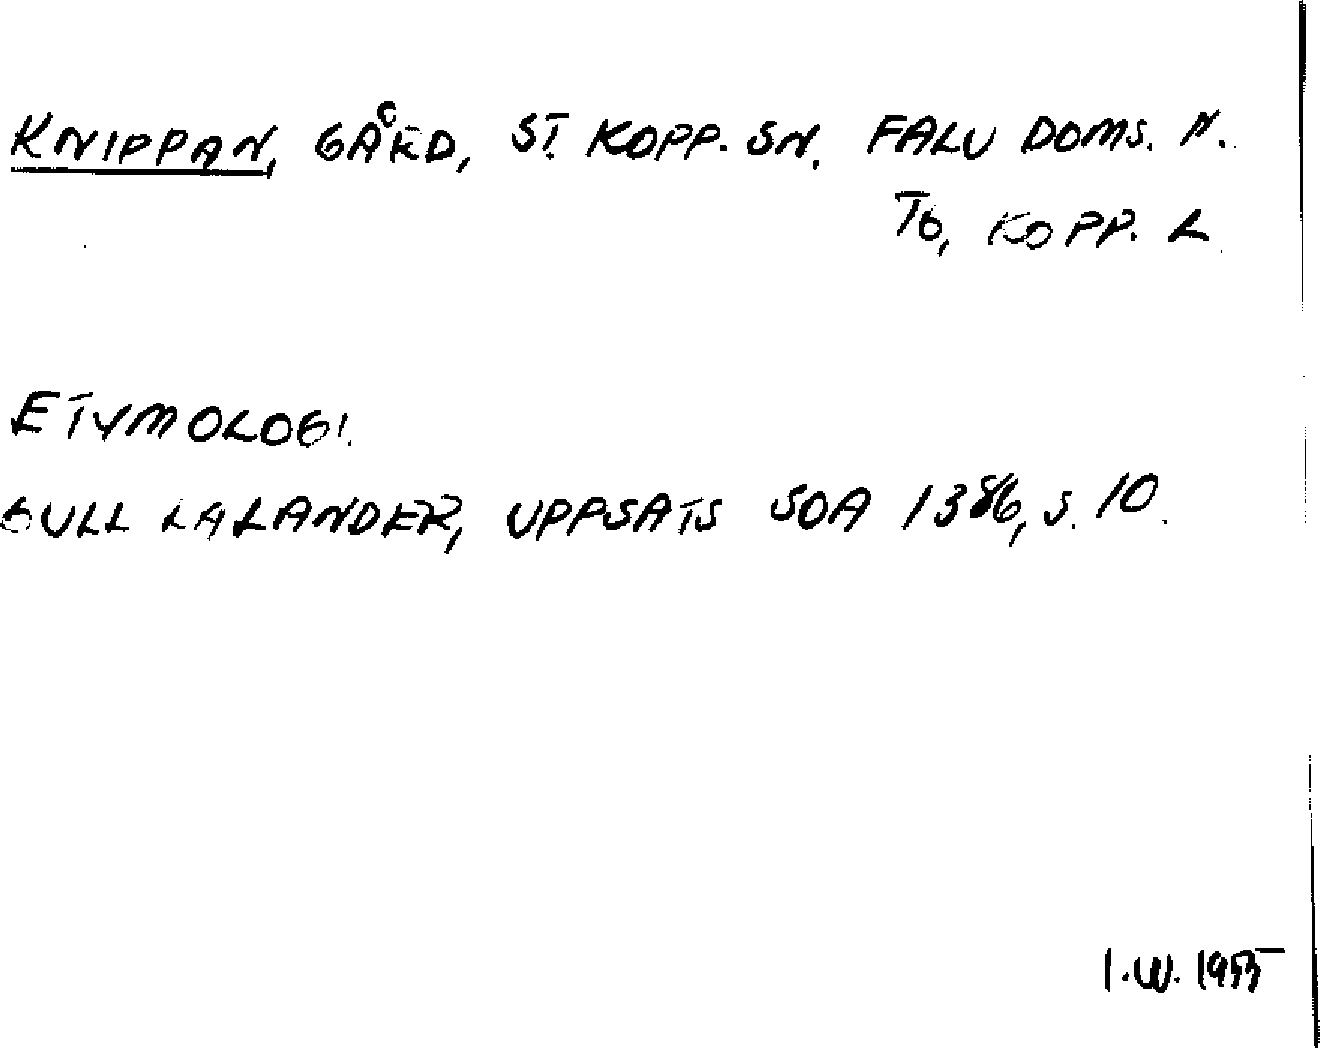 KNIPPAN, GÅRD, ST. KOPP. SN. FALU DOMS. N.
TG, KOPP. L
ETYMOLOGI.
GULL LALANDER, UPPSATS SOA 1386, S. 10.
I.W. 1955